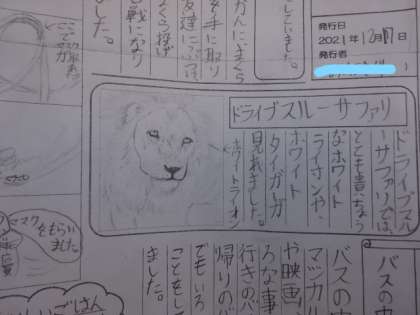 発行日
2021年12月17日
発行者
していました。
かんにまくら
を手に取り
くら投げ
戦になり
した。
ドライブスルーサファリ
ドライブスル
ーサファリでは、
とても貴ちょう
なホワイト
ライオンや、
ホワイト
タイガーが
見れました。
ホワイトライオン
バスの中
バスの
マジカル
や映画、
ろな事
行きのバ
帰りのバ
でもいろ
ことをし
ました。
マスクを
もらい
ました